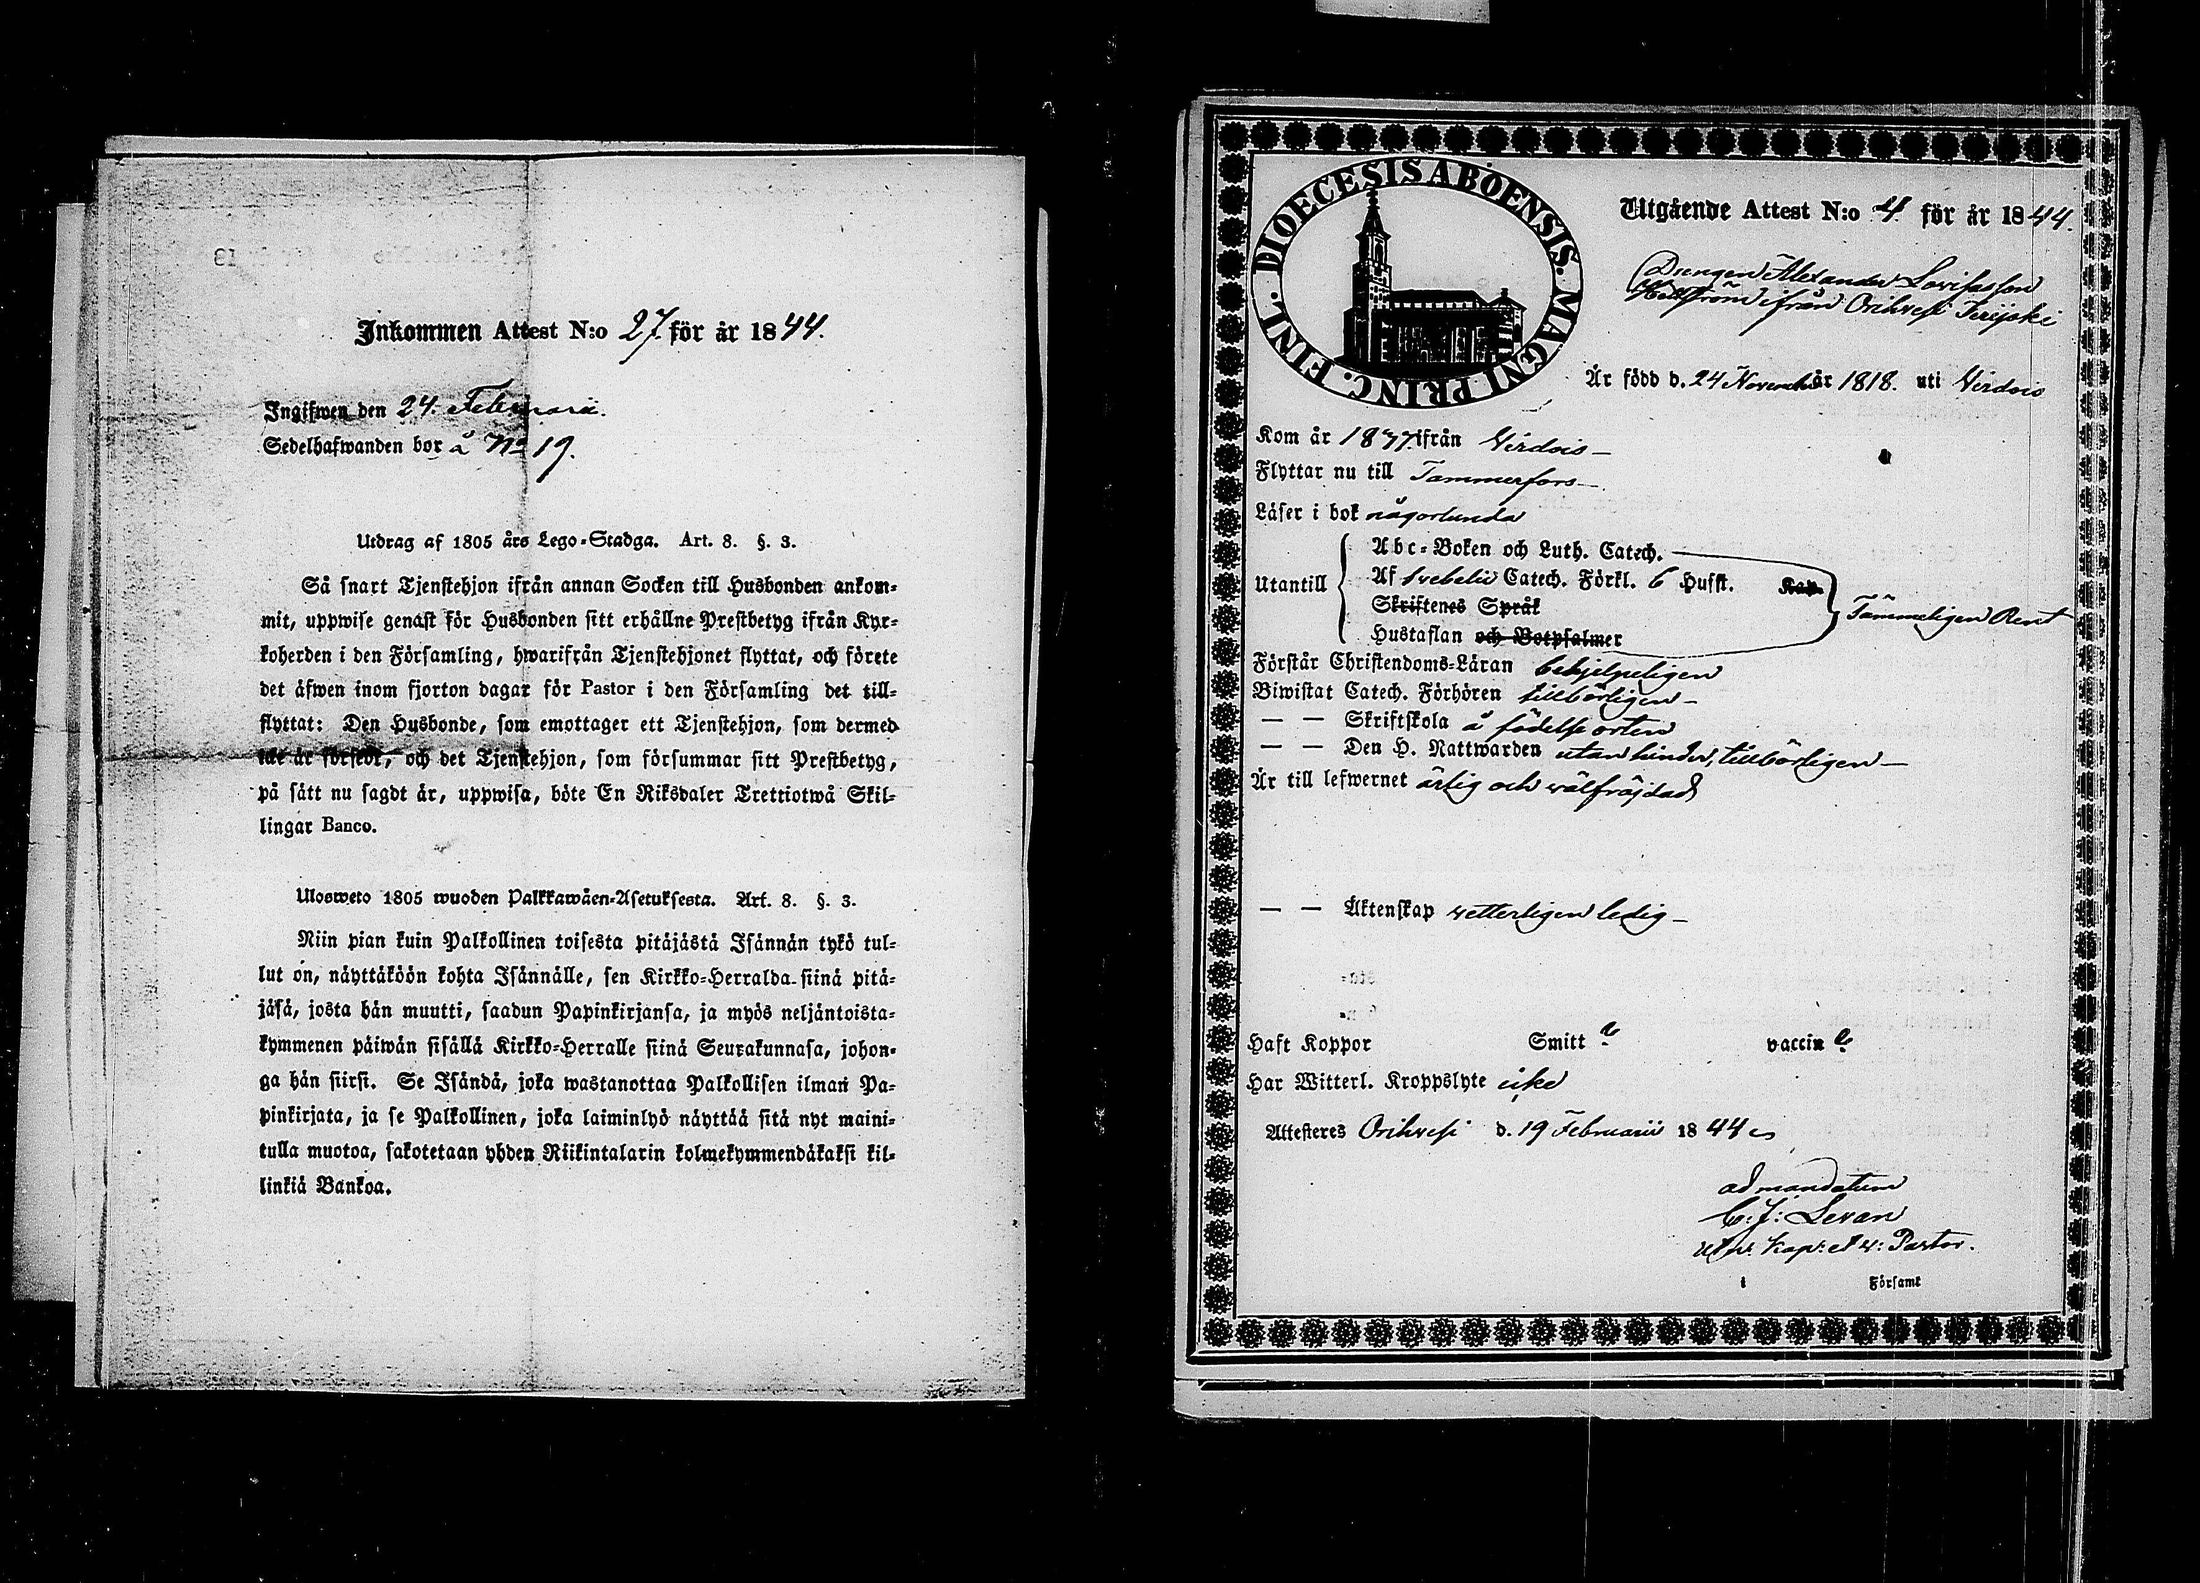 Inkommen Attest N:o 27 för år 1844.
Ingifwen den 24. Februarii.
Sedelhafwanden bor å No 19.
Utdrag af 1805 års Lego-Stadga. Art. 8. §. 3.
Så snart Tjenstehjon ifrån annan Socken till Husbonden ankom-
mit, uppwise genast för Husbonden sitt erhållne Prestbetyg ifrån Kyr-
koherden i den Församling, hwarifrån Tjenstehjonet flyttat, och förete
det äfwen inom fjorton dagar för Pastor i den Församling det till-
flyttat: Den Husbonde, som emottager ett Tjenstehjon, som dermed
är försedt, och det Tjenstehjon, som försummar sitt Prestbetyg,
på sätt nu sagdt är, uppwisa, böte En Riksdaler Trettiotwå Skil-
lingar Banco.
Ulosweto 1805 wuoden Palkkawäen-Asetuksesta. Art. 8. §. 3.
Niin pian kuin Palkollinen toisesta pitäjästä Isännän tykö tul-
lut on, näyttäköön kohta Isännälle, sen Kirkko-Herralda siinä pitä-
jäsä, josta hän muutti, saadun Papinkirjansa, ja myös neljäntoista-
kymmenen päiwän sisällä Kirkko-Herralle siinä Seurakunnasa, johon-
ga hän siirsi. Se Isändä, joka wastanottaa Palkollisen ilman Pa-
pinkirjata, ja se Palkollinen, joka laiminlyö näyttää sitä nyt maini-
tulla muotoa, sakotetaan yhden Riikintalarin kolmekymmendäkaksi kil-
linkiä Bankoa.
DIOECESIS ABOENSIS. MAGNI PRINC. FINL.
Utgående Attest N:o 4 för år 1844.
Drengen Alexander Lovisasson
Hellström ifrån Orihvesi
Är född d. 24 November 1818. uti Virdois
Kom år 18 ifrån Virdois
Flyttar nu till Tammerfors
Läser i bok någorlunda
Utantill
Abc-Boken och Luth. Catech.
Af Svebelii Catech. Förkl. 6 Hufst. Kap.
Skriftenes Språk
Hustaflan och Botpsalmer
Tämmeligen Rent
Förstår Christendoms-Läran behjelpeligen
Biwistat Catech. Förhören tillbörligen
— — Skriftskola å födelse orten
— — Den H. Nattwarden utan hinder, tillbörligen
Är till lefwernet ärlig och wälfräjdad
— — Äktenskap vetterligen ledig
Haft Koppor Smitt vaccin
Har Witterl. Kroppslyte icke
Attesteres Orihvesi d. 19 Februarii 1844
ad mandatum
C: J: Levan
Kap: et v: Pastor.
i Församl